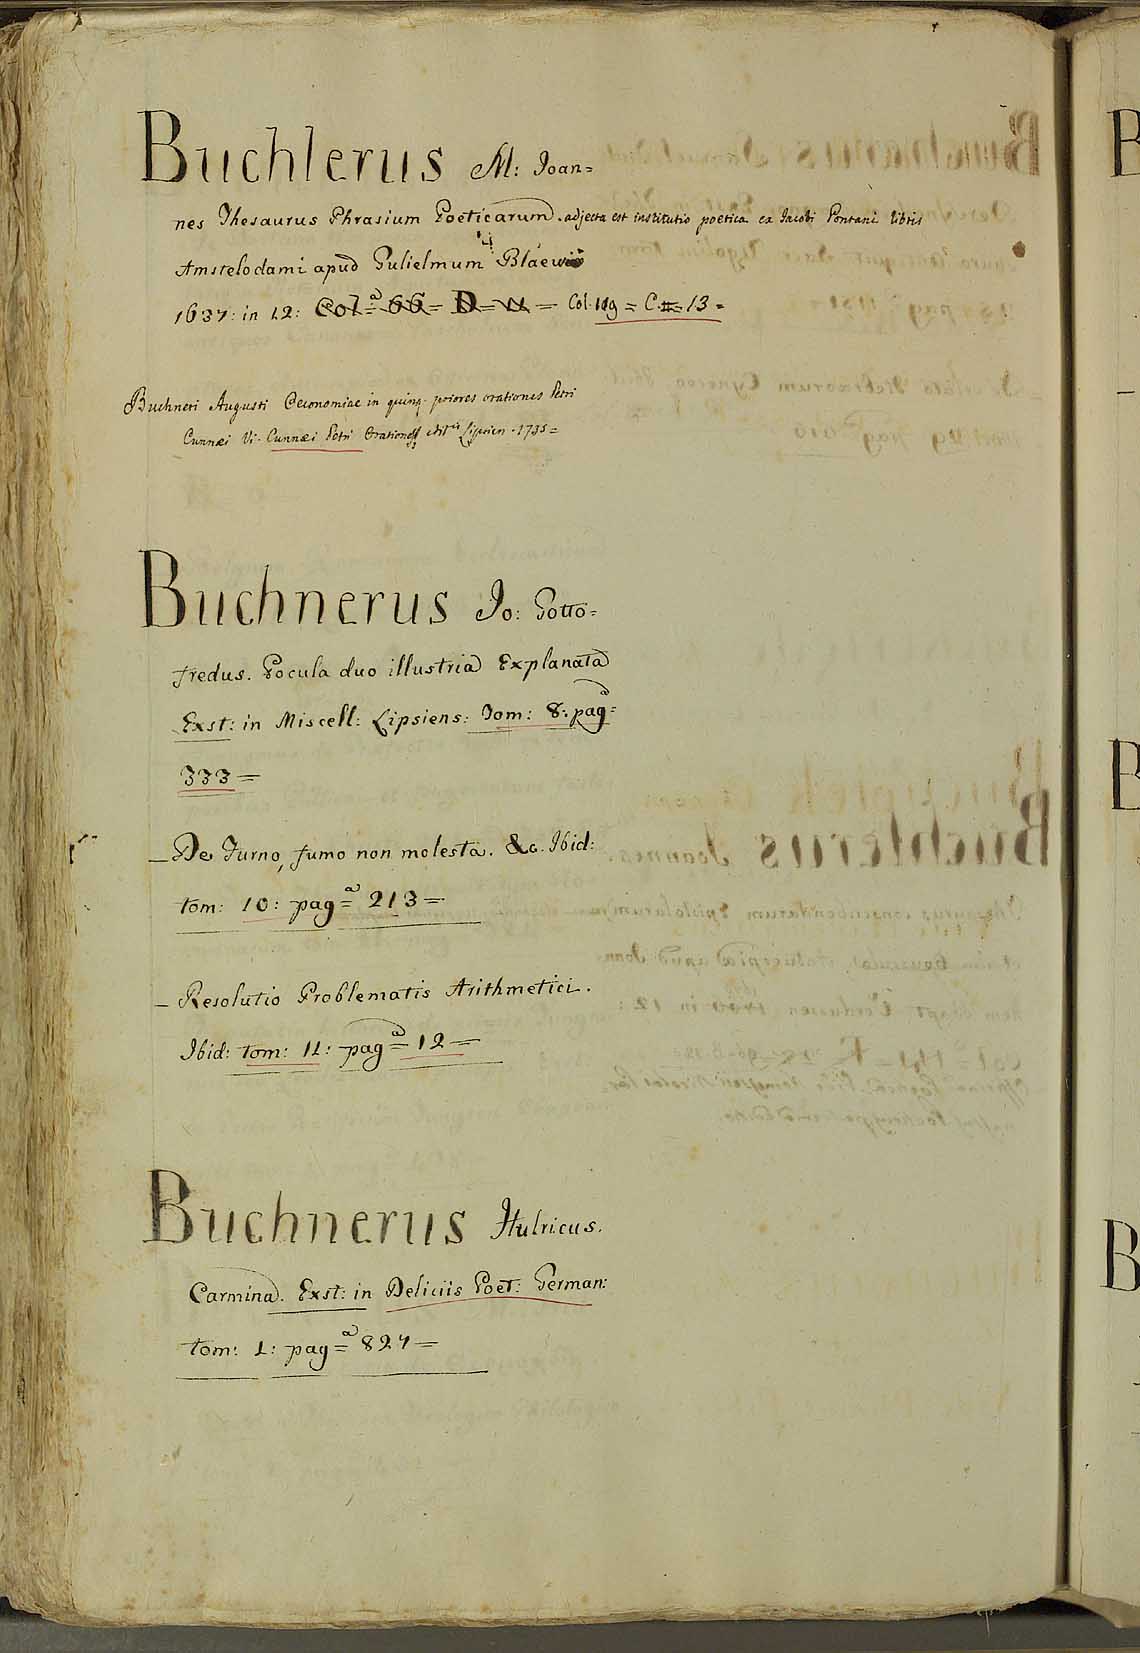 Buchlerus M: Joan=
nes Thesaurus Phrasium Poeticarum. adjecta est institutio poetica ex Jacobi Pontani libris
Amstelodami apud Gulielmum Blaew
1637: in 12: Col.ª 66 = D = 11 = Col. 119 = C. = 13 =
Buchneri Augusti Oeconomiae in quinq. priores orationes Petri
Cunnæi Vi. Cunnæi Petri Orationes edit.ⁱˢ Lipsien. 1735=
Buchnerus Jo: Gotto=
fredus. Pocula duo illustria Explanata
Exst: in Miscell: Lipsiens: Tom: 8: pagª=
333=
_De Furno, fumo non molesta. &c. Ibid:
tom: 10: pagª= 213=
_Resolutio Problematis Arithmetici.
Ibid: tom: 11: pagª= 12=
Buchnerus Hulricus.
Carmina. Exst: in Deliciis Poet: German:
tom: 1: pagª= 827=